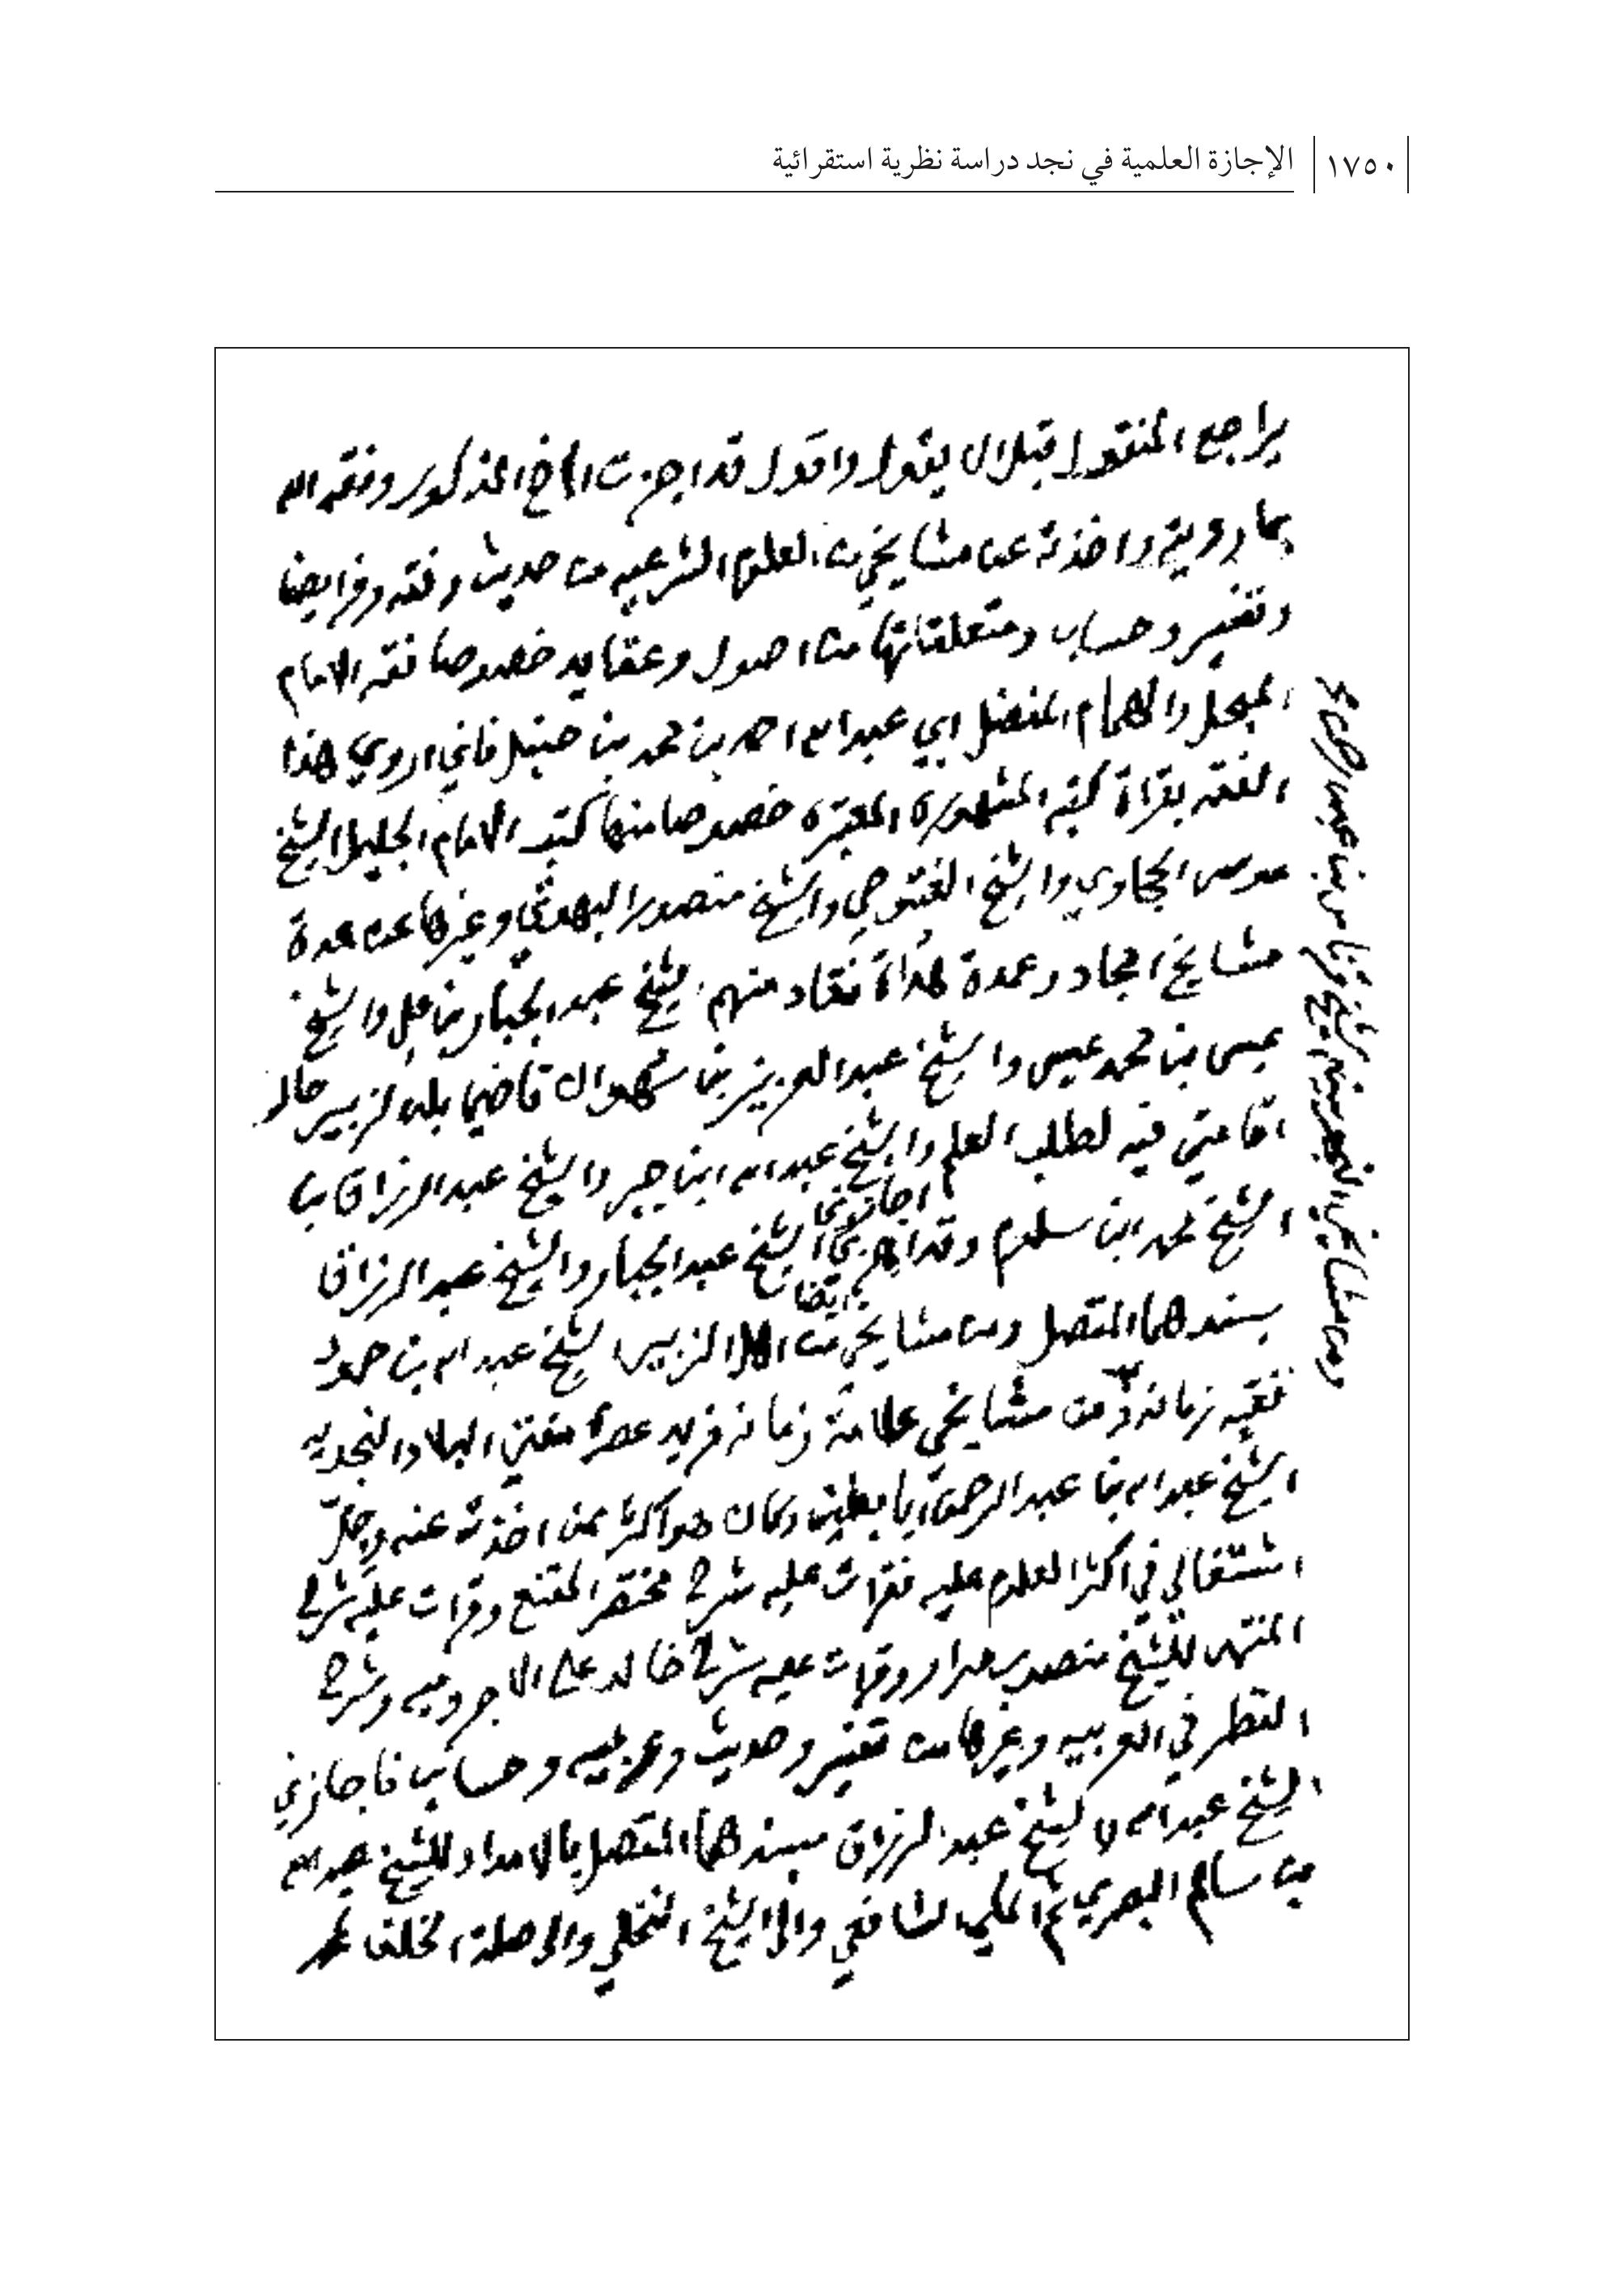 ١٧٥٠ الإجازة العلمية في نجد دراسة نظرية استقرائية
يراجع المنقول قبل ان يقول واقول قد اجزت الاخ المذكور وفقه الله
بما رويته واخذته عن مشايخي من العلوم الشرعيه من حديث وفقه وفرايض
وتفسير وحساب ومتعلقاتها من اصول وعقايد خصوصا فقه الامام
المبجل والهمام المفضل ابي عبد الله احمد بن محمد بن حنبل فاني اروي هذا
الفقه بقراءة كتبه المشهورة المعتبره خصوصا منها كتب الامام الجليل الشيخ
موسى الحجاوي والشيخ الفتوحي والشيخ منصور البهوتي وغيرها عن عدة
مشايخ امجاد وعمدة نقاد منهم الشيخ عبد الجبار بن علي والشيخ
عيسى بن محمد عيسى والشيخ عبد العزيز بن شهوان قاضي بلد الزبير حال
اقامتي فيه لطلب العلم والشيخ عبد الله ابن جبر والشيخ عبد الرزاق بن
الشيخ محمد ابن سلوم وقد اجازوني الشيخ عبد الجبار والشيخ عبد الرزاق
بسندهما المتصل ومن مشايخي من اهل الزبير ايضا الشيخ عبد الله بن حمود
فقيه زمانه ومن مشايخي علامة زمانه فريد عصره مفتي البلاد النجديه
الشيخ عبد الله بن عبد الرحمن ابا بطين وكان هو اكثر من اخذت عنه وجل
اشتغالي في اكثر العلوم عليه فقرات عليه شرح مختصر المقنع وقرات عليه شرح
المنتهى للشيخ منصور مرارا وقرات عليه شرح خالد على الاجروميه وشرح
القطر في العربيه وغيرها من تفسير وحديث وعربيه وحساب فاجازني
الشيخ عبد الله كالشيخ عبد الرزاق بسندهما المتصل بالامداد للشيخ عبد الله
بن سالم البصري ثم المكي الشافعي والى الشيخ النخلي والى صلة الخلف لمحمد
ومن مشايخي